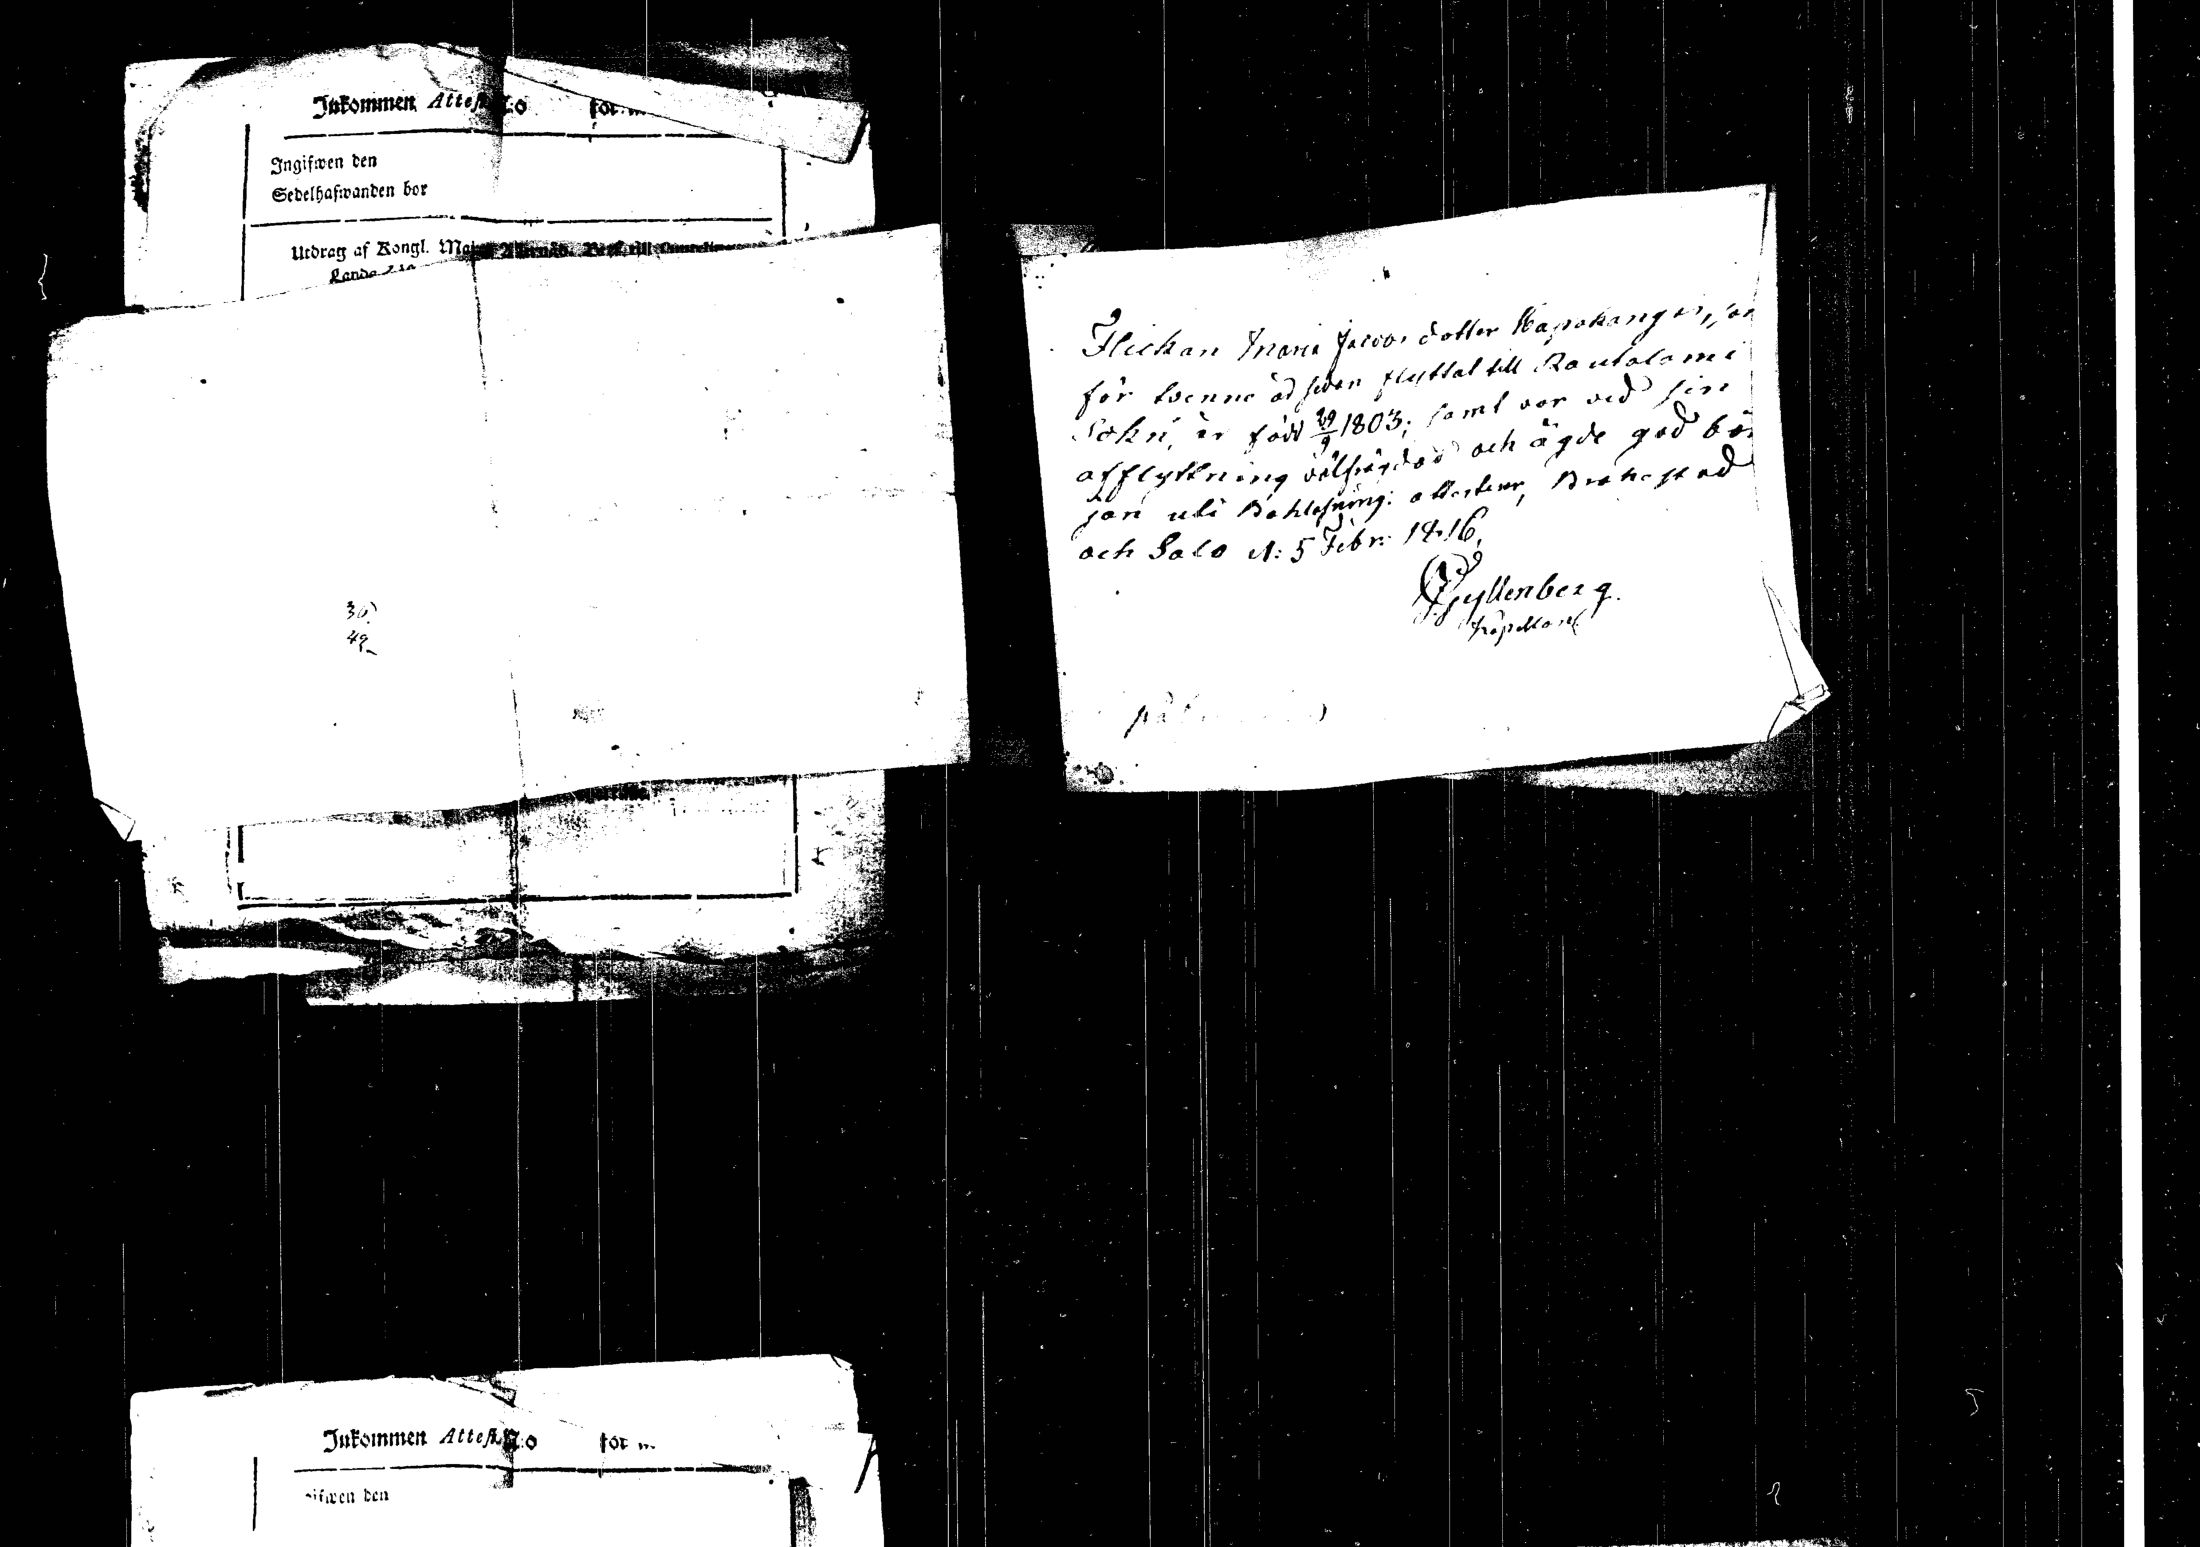 Inkommen Attest N:o för
Ingifwen den
Sedelhafwanden bor
Utdrag af Kongl. Maj:ts
30
49
Flickan Maria Jacobs dotter Kapakanges,
för tvenne år sedan flyttat till Rautalami
Sokn, är född 29/9 1803; samt var vid sin
afflyttning välfrägdad och ägde god
jan uti Bokläsning: attesterar, Brahestad
och Salo d: 5 Febr: 1816.
Gyllenberg.
Kapellan
Inkommen Attest N:o för
ifwen den